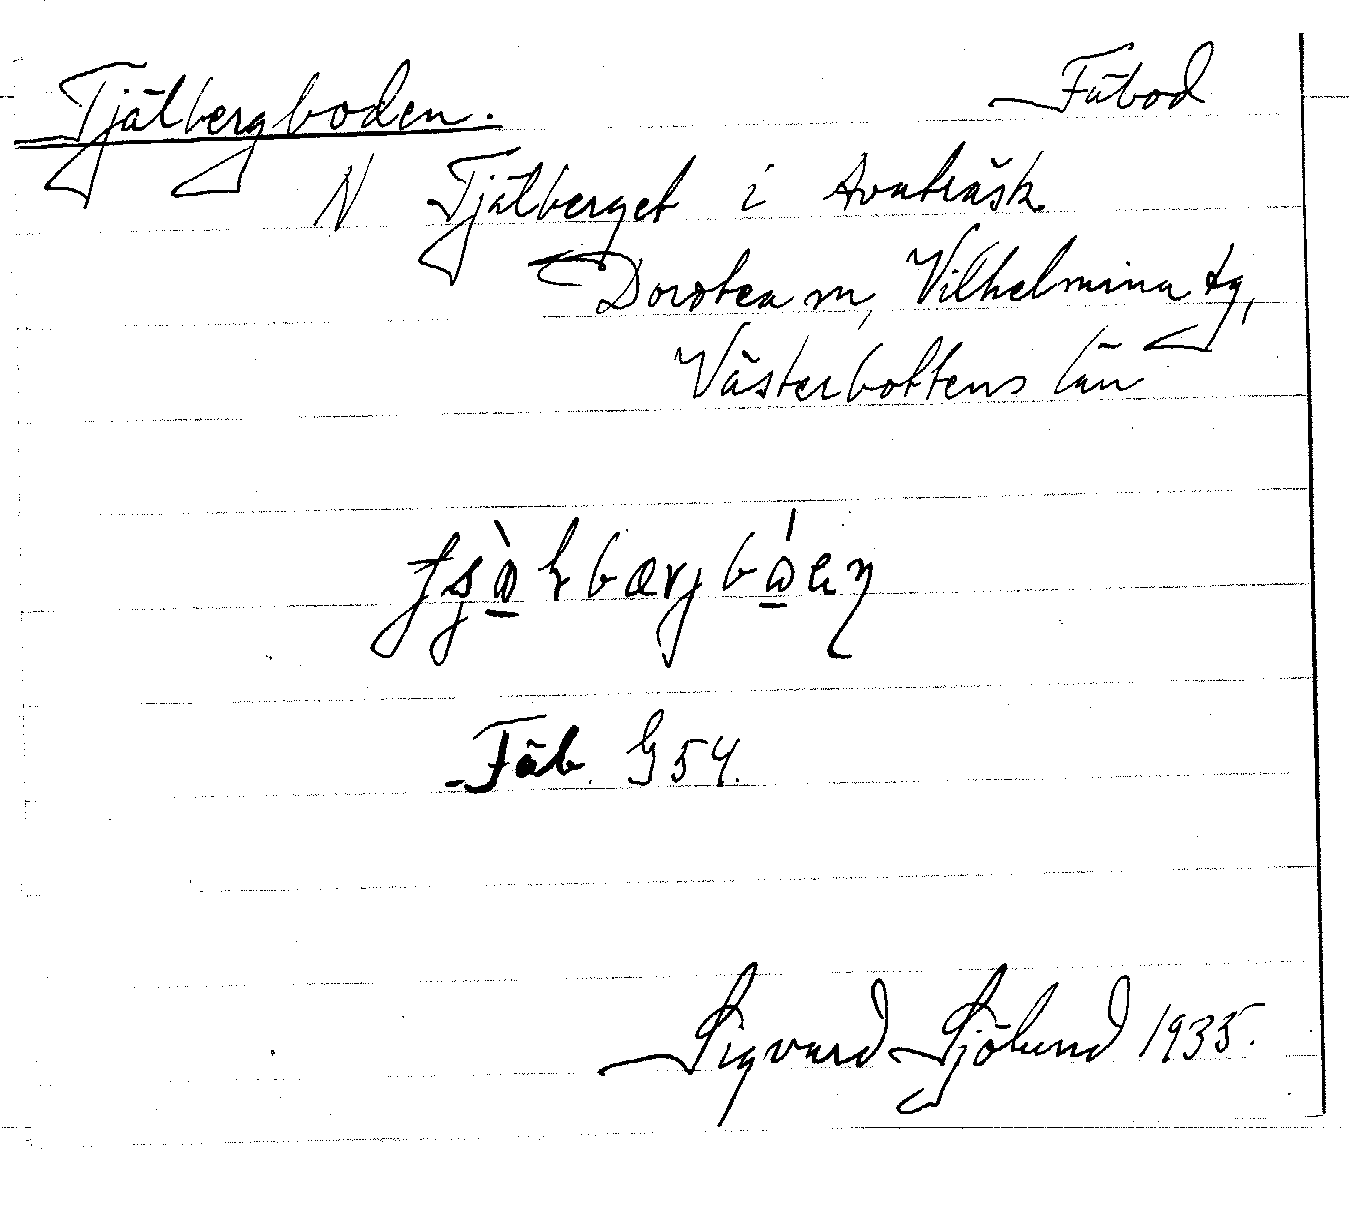 Tjälbergboden. Fäbod
N Tjälberget i Avaträsk
Dorotea sn, Vilhelmina tg,
Västerbottens län
Fäb. G54.
Sigvard Sjölund 1935.